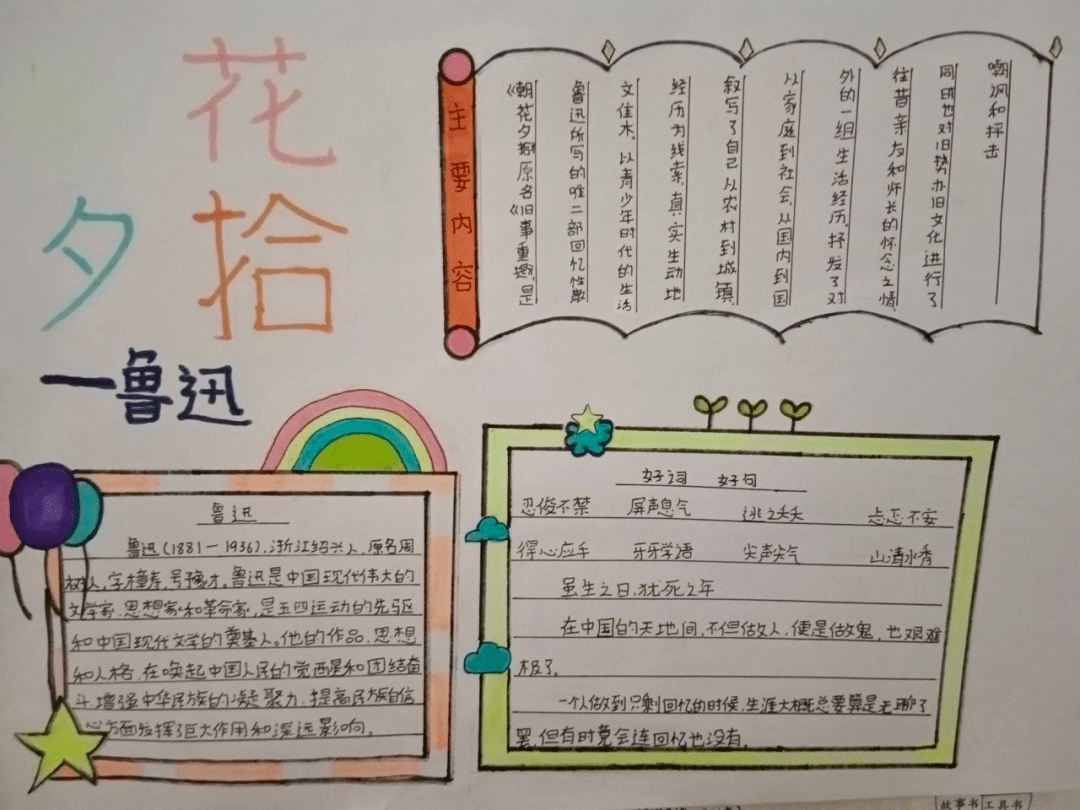 花
夕拾
一鲁迅
主要内容
《朝花夕拾》原名《旧事重提》,是
鲁迅所写的唯一一部回忆性散
文佳木,以青少年时代的生活
经历为线索,真实生动地
叙写了自己从农村到城镇,
从家庭到社会,从国内到国
外的一组生活经历,抒发了对
往昔亲友和师长的怀念之情,
同时也对旧势办旧文化进行了
嘲讽和抨击
鲁迅
鲁迅(1881一1936),浙江绍兴人,原名周
树人,字樟寿,号豫才。鲁迅是中国现代伟大的
文学家、思想家和革命家,是五四运动的先驱
和中国现代文学的奠基人。他的作品、思想
和人格,在唤起中国人民的觉醒和团结奋
斗、增强中华民族的凝聚力、提高民族自信
心方面发挥了巨大作用和深远影响。
好词 好句
忍俊不禁 屏声息气 逃之夭夭 忐忑不安
得心应手 牙牙学语 尖声尖气 山清水秀
虽生之日,犹死之年
在中国的天地间,不但做人,便是做鬼,也艰难
极了。
一个人做到只剩回忆的时候,生涯大概总要算是无聊了
罢,但有时竟会连回忆也没有。
故事书 工具书